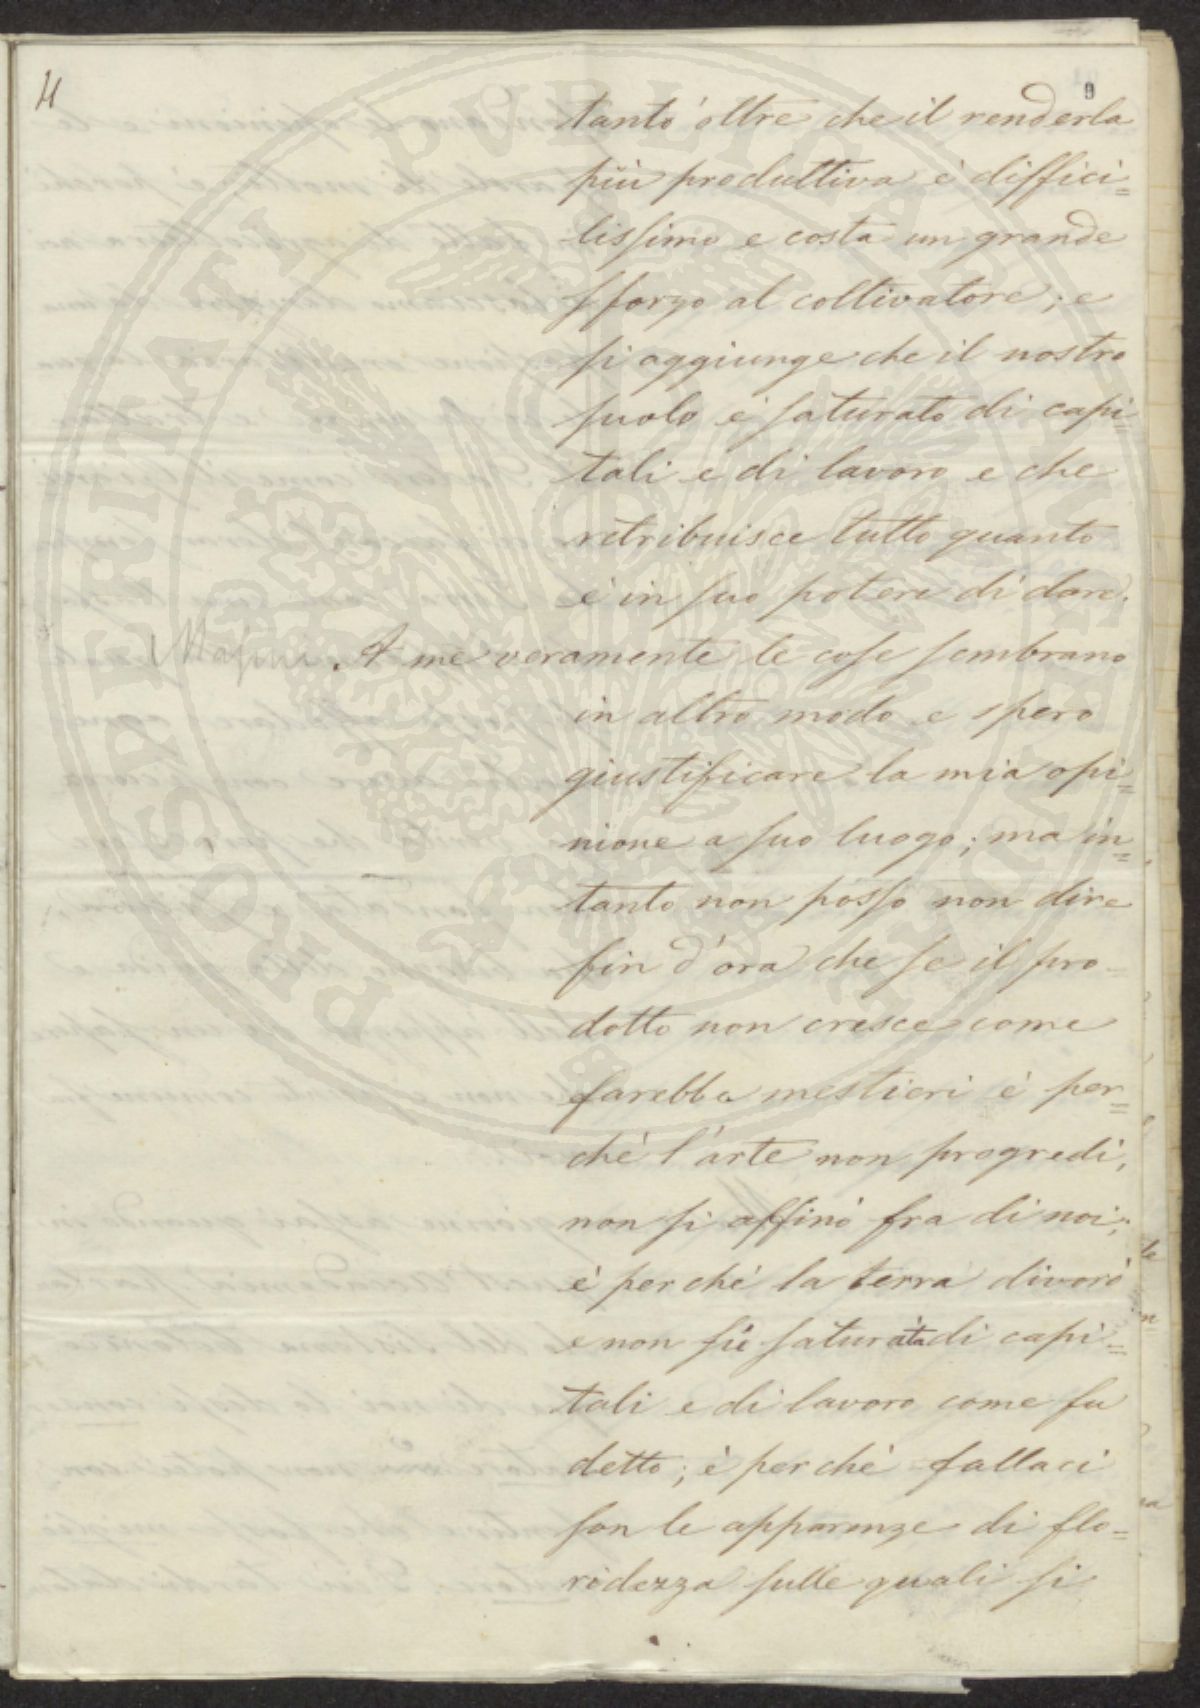 9
tant'oltre che il renderla
più produttiva è diffici=
lissimo e costa un grande
sforzo al coltivatore; e
si aggiunge che il nostro
suolo è saturato di capi=
tali e di lavoro e che
retribuisce tutto quanto
è in suo potere di dare.
Masini A me veramente le cose sembrano
in altro modo e spero
giustificare la mia opi=
nione a suo luogo; ma in=
tanto non posso non dire
fin d'ora che se il pro-
dotto non cresce come
farebbe mestieri è per=
chè l'arte non progredì,
non si affinò fra di noi;
è perchè la terra divorò
e non fù saturata di capi=
tali e di lavoro come fu
detto; è perchè fallaci
son le apparenze di flo=
ridezza sulle quali si
PROSPERITATI PVBLICAE AVGENDAE